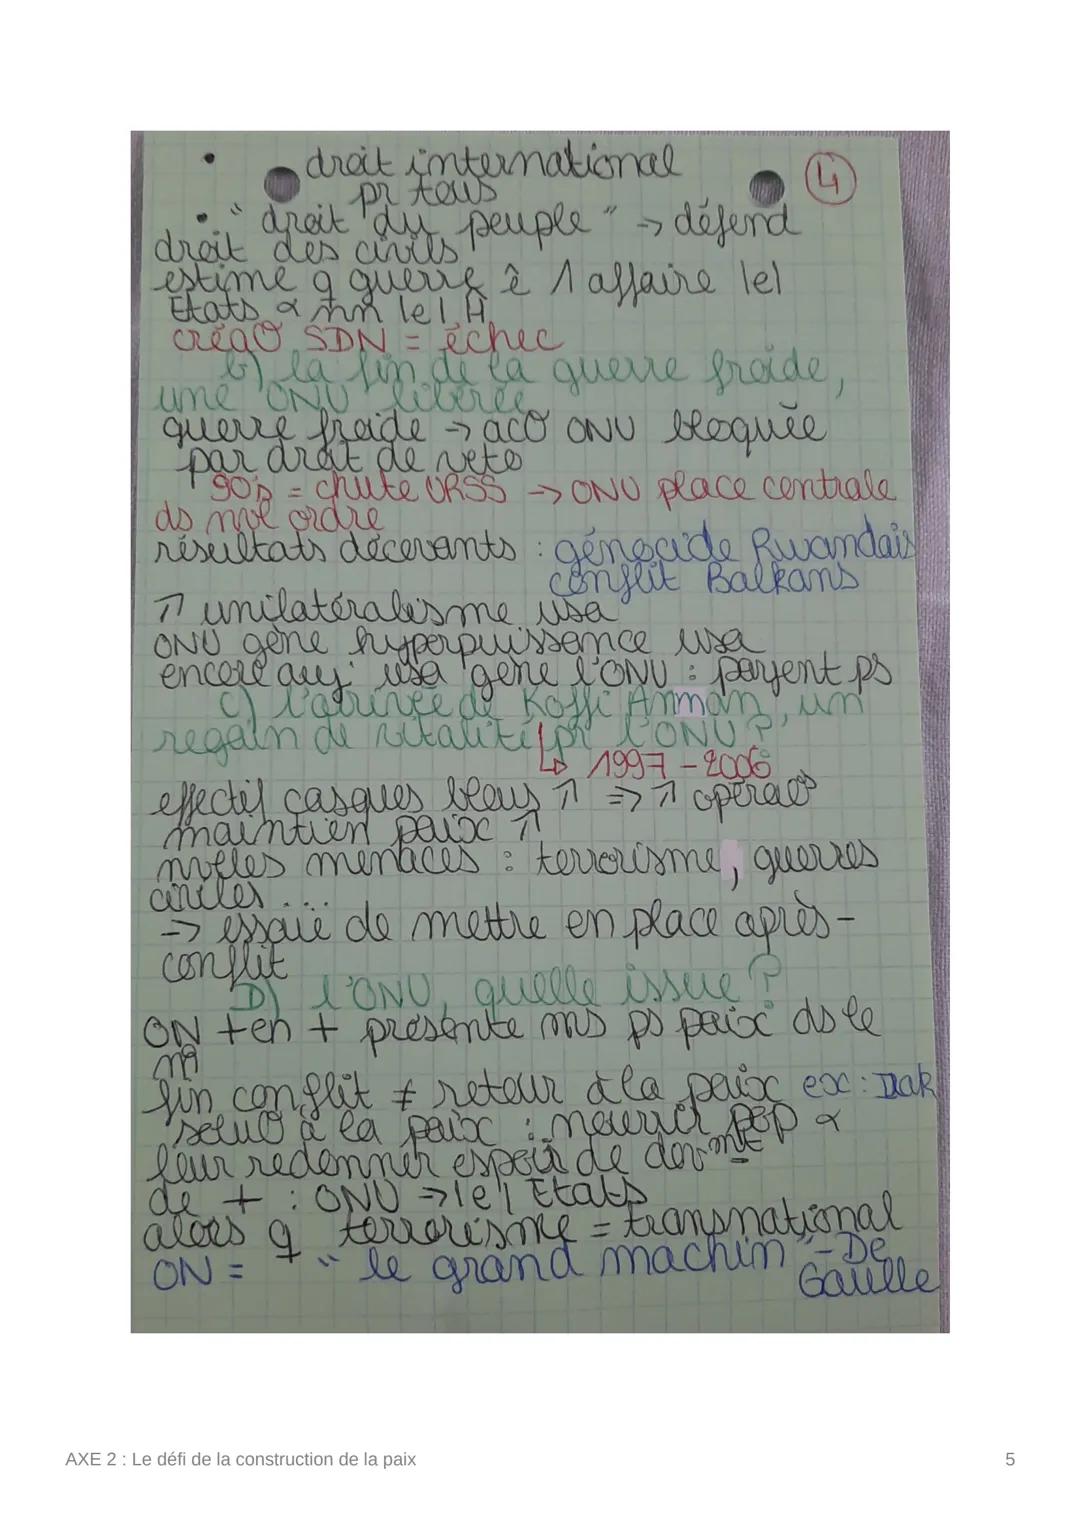 • droit international
pr tous
④
• "droit du peuple" → défend
droit des civils
estime q guerre ê 1 affaire le1
Etats & nn le1 H
créaO SDN = échec
b) la fin de la guerre froide,
une ONU libérée
guerre froide → acO ONU bloquée
par droit de veto
90's = chute URSS → ONU place centrale
ds nvl ordre
résultats décevants : génocide Rwandais
conflit Balkans
↗ unilatéralisme usa
ONU gêne hyperpuissance usa
encore auj: usa gêne l'ONU : payent ps
c) l'arrivée de Koffi Annan, un
regain de vitalité pr l'ONU ?
↳ 1997 - 2006
effectif casques bleus ↗ => ↗ opéraOs
maintien paix ↗
nvelles menaces : terrorisme, guerres
civiles...
-> essaie de mettre en place après-
conflit
D) l'ONU, quelle issue ?
ON + en + présente ms ps paix ds le
md
fin conflit ≠ retour à la paix ex: Irak
soluO à la paix : nourrir pop &
leur redonner espoir de
de + : ONU => le1 Etats
alors q terrorisme = transnational
ON = "le grand machin" - De
Gaulle
AXE 2 : Le défi de la construction de la paix
5